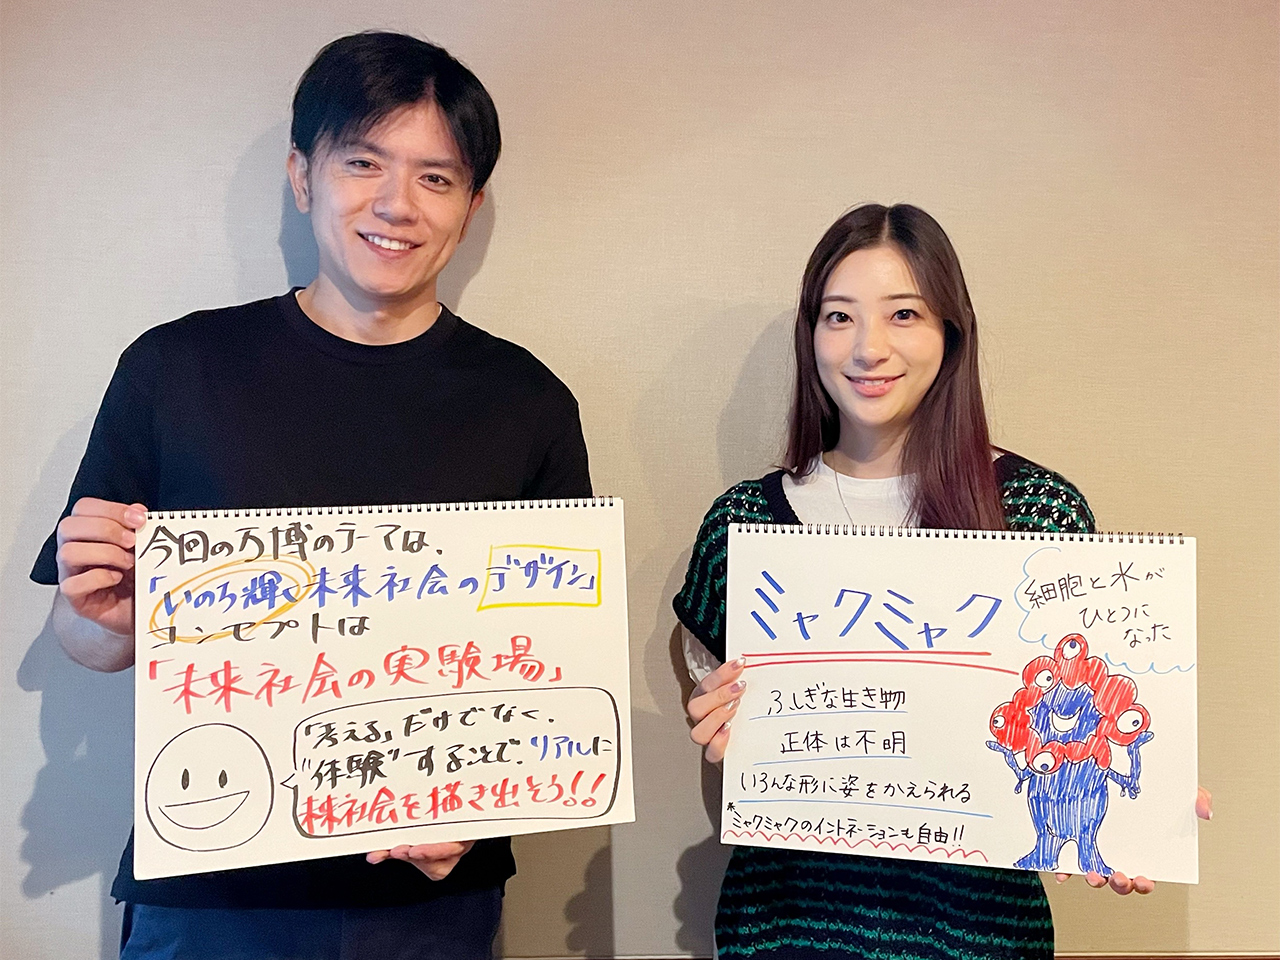 今回の万博のテーマは、
「いのち輝く未来社会のデザイン」
コンセプトは
「未来社会の実験場」
「考える」だけでなく、
"体験"することで、リアルに
未来社会を描き出そう!!
ミャクミャク
細胞と水が
ひとつに
なった
ふしぎな生き物
正体は不明
いろんな形に姿をかえられる
*ミャクミャクのイントネーションも自由!!